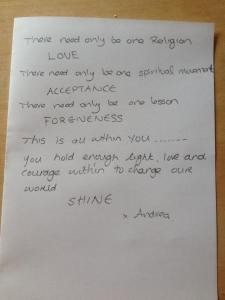 There need only be one Religion
LOVE
There need only be one spiritual movement
ACCEPTANCE
There need only be one lesson
FORGIVENESS
This is all within you.......
you hold enough light, love and
courage within to change our
world
SHINE
x Andrea